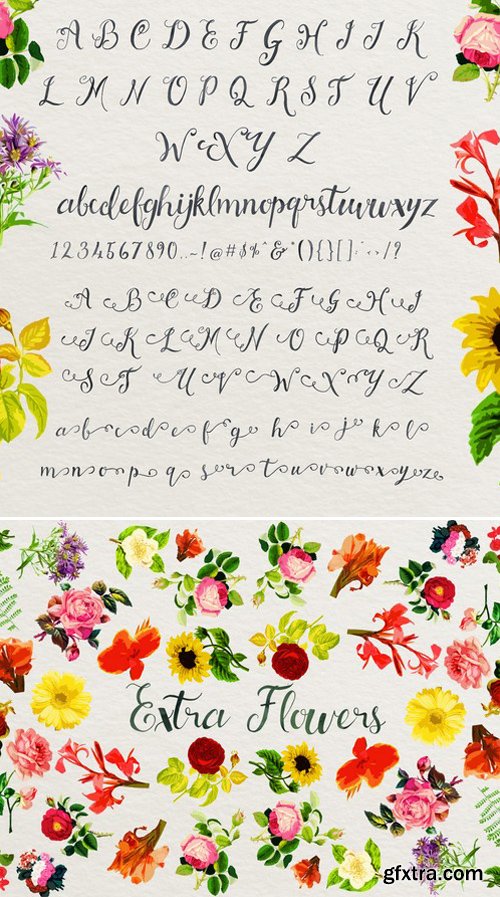 A B C D E F G H I J K
L M N O P Q R S T U V
W X Y Z
abcdefghijklmnopqrstuvwxyz
1234567890..~!@#$%^&*(){}[]:-‹›/?
A B C D E F G H I
J K L M N O P Q R
S T U V W X Y Z
a b c d e f g h i j k l
m n o p q s r t u v w x y z
Extra Flowers
gfxtra.com